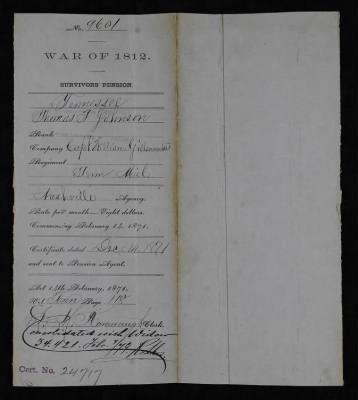 No. 9601
WAR OF 1812.
SURVIVORS PENSION.
Tennessee
Thomas F Johnson
Rank
Company Capt William
Regiment
Tenn Mil
Nashville Agency
Rate per month Eight dollars.
Commencing February 14, 1871.
Certificate dated Dec 1871
and sent to Pension Agent.
Act 14th February, 1871.
Vol. 1 Tenn Page 118
Clerk.
Consolidated with Widow
34.421. Feb.
Cert. No. 24717